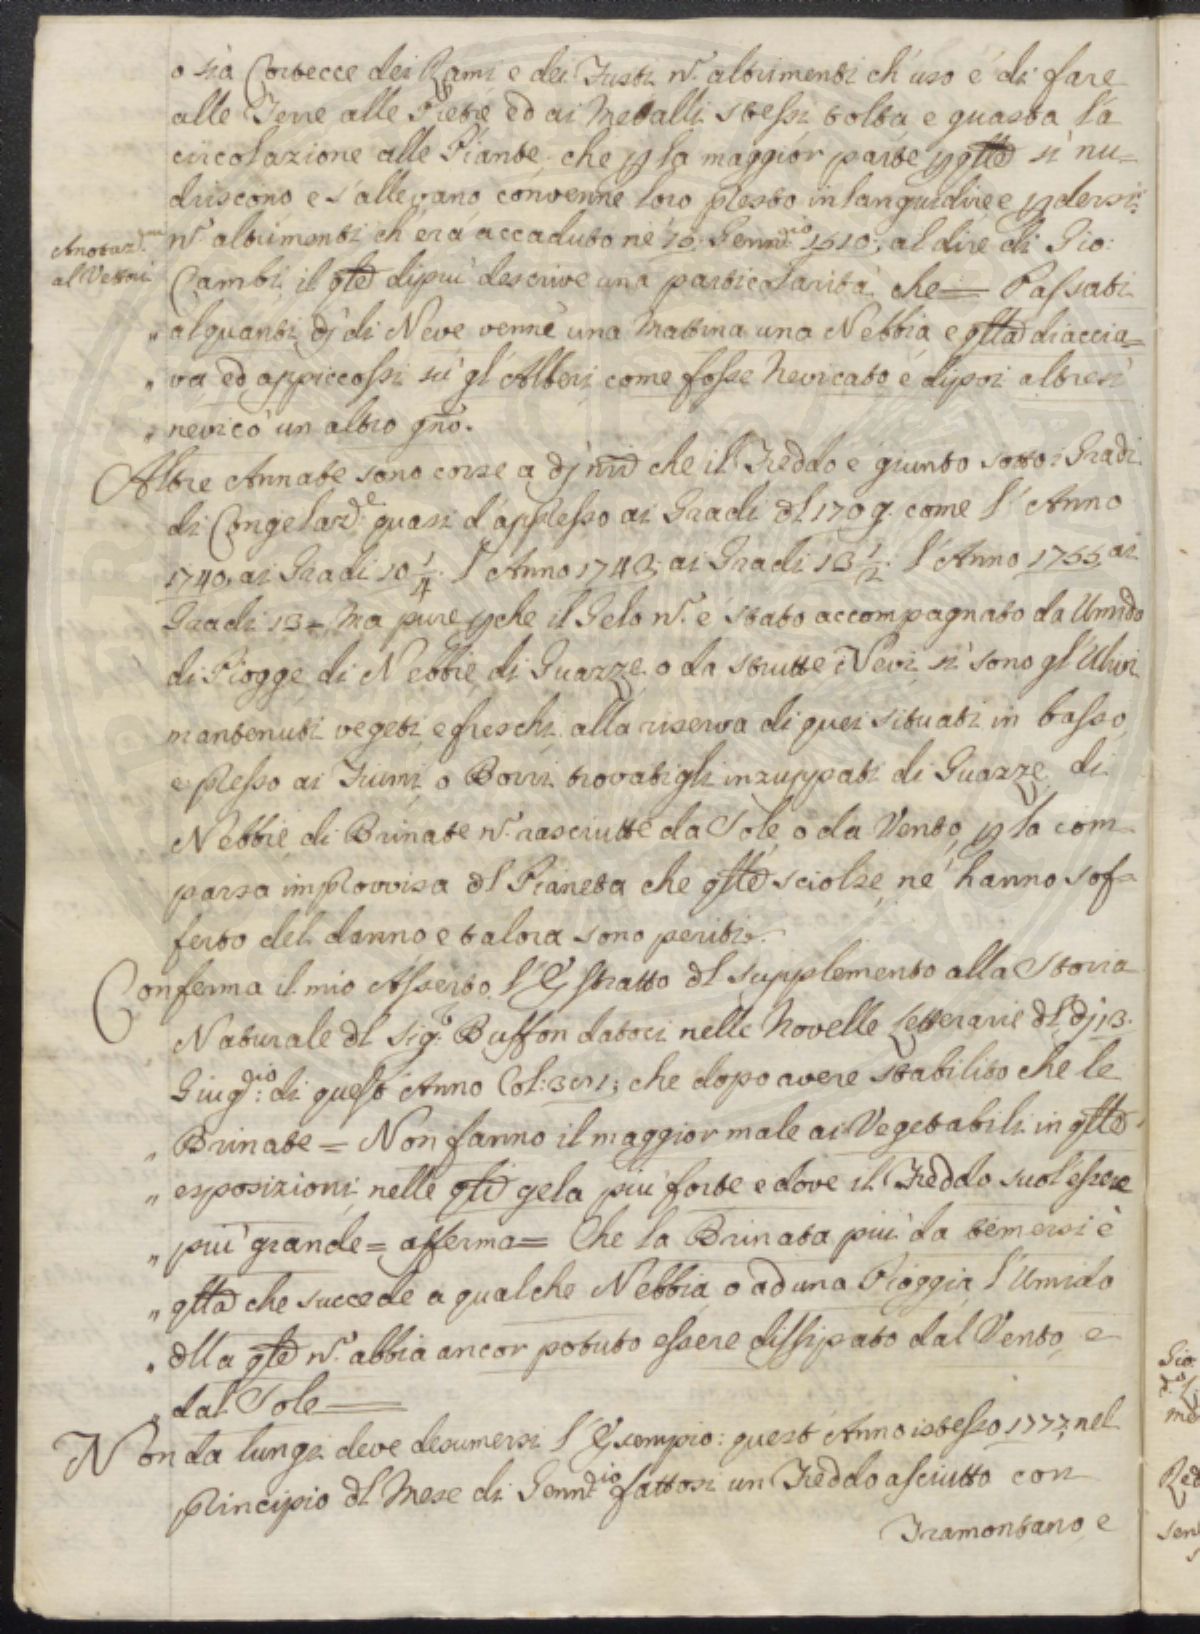 o sia Cortecce dei Rami e dei Fusti n. altrimenti ch'uso è di fare
alle Terre alle Pietre ed ai Metalli stessi tolta e guasta la
circolazione alle Piante che p la maggior parte p qsta si nu=
driscono e s'allevano convenne loro presto inlanguidire e pdersi:
Anotaz.ni
al Vettori
n. altrimenti ch'era accaduto ne 10. Genn.io 1510. al dire di Gio:
Cambi il qle dipiù descrive una particolarità che = Passati
" alquanti dj di Neve venne una Mattina una Nebbia e qlla diaccia=
" va ed appiccossi sù gl'Alberi come fosse Nevicato e dipoi altresì
" nevicò un altro gno.
Altre Annate sono corse a dj nri che il Freddo è giunto sotto i Gradi
di Congelaz.e quasi d'appresso ai Gradi dl 1709. come l'Anno
1740. ai Gradi 10 1/4. l'Anno 1742; ai Gradi 13 1/2. l'Anno 1755 ai
Gradi 13 = Ma pure pche il Gelo n. è stato accompagnato da Umido
di Piogge di Nebbie di Guazze o da strutte Nevi si sono gl'Ulivi
mantenuti vegeti e freschi alla riserva di quei situati in basso
e presso ai Fiumi o Borri trovatigli inzuppati di Guazze di
Nebbie di Brinate n. rasciutte da Sole o da Vento p la com
parsa improvvisa dl Pianeta che qste sciolse ne hanno sof=
ferto del danno e talora sono periti.
Conferma il mio Asserto l'Estratto dl supplemento alla Storia
Naturale dl Sig.e Buffon datoci nelle Novelle Letterarie dl dj 13.
Giug.io di quest'Anno Col: 371; che dopo avere stabilito che le
" Brinate = Non fanno il maggior male ai Vegetabili in qlle
" esposizioni nelle qli gela più forte e dove il Freddo suol'essere
" più grande = afferma = Che la Brinata più da temersi è
" qlla che succede a qualche Nebbia o ad una Pioggia l'Umido
" dlla qle n. abbia ancor potuto essere dissipato dal Vento e
" dal Sole =
Non da lungi deve desumersi l'Esempio: quest'Anno istesso 1777 nel
Principio dl Mese di Genn.io fattosi un Freddo asciutto con
Tramontano e
Gio.